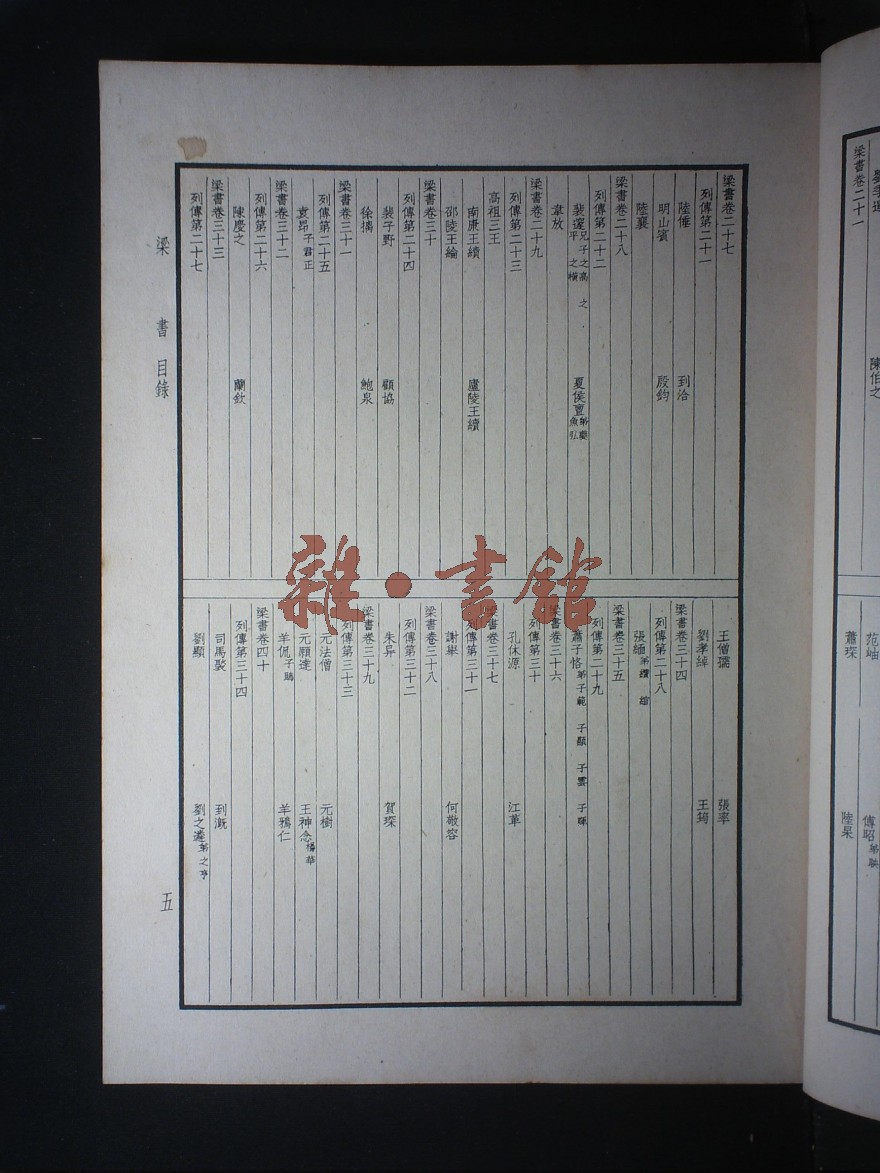 梁書卷二十七
列傳第二十一
陸倕 到洽
明山賓 殷鈞
陸襄
梁書卷二十八
列傳第二十二
裴邃 兄子之高 之平 之橫 夏侯亶 弟夔 魚弘
韋放
梁書卷二十九
列傳第二十三
高祖三王
南康王績 廬陵王續
邵陵王綸
梁書卷三十
列傳第二十四
裴子野 顧協
徐摛 鮑泉
梁書卷三十一
列傳第二十五
袁昂 子君正
梁書卷三十二
列傳第二十六
陳慶之 蘭欽
梁書卷三十三
列傳第二十七
王僧孺 張率
劉孝綽 王筠
梁書卷三十四
列傳第二十八
張緬 弟纘 綰
梁書卷三十五
列傳第二十九
蕭子恪 弟子範 子顯 子雲 子暉
梁書卷三十六
列傳第三十
孔休源 江革
梁書卷三十七
列傳第三十一
謝舉 何敬容
梁書卷三十八
列傳第三十二
朱异 賀琛
梁書卷三十九
列傳第三十三
元法僧 元樹
元願達 王神念 楊華
羊侃 子鵾 羊鴉仁
梁書卷四十
列傳第三十四
司馬褧 到溉
劉顯 劉之遴 弟之亨
梁書 目錄
五
雜·書館
梁書卷二十一
陳伯之
范岫 傅昭 弟映
蕭琛 陸杲